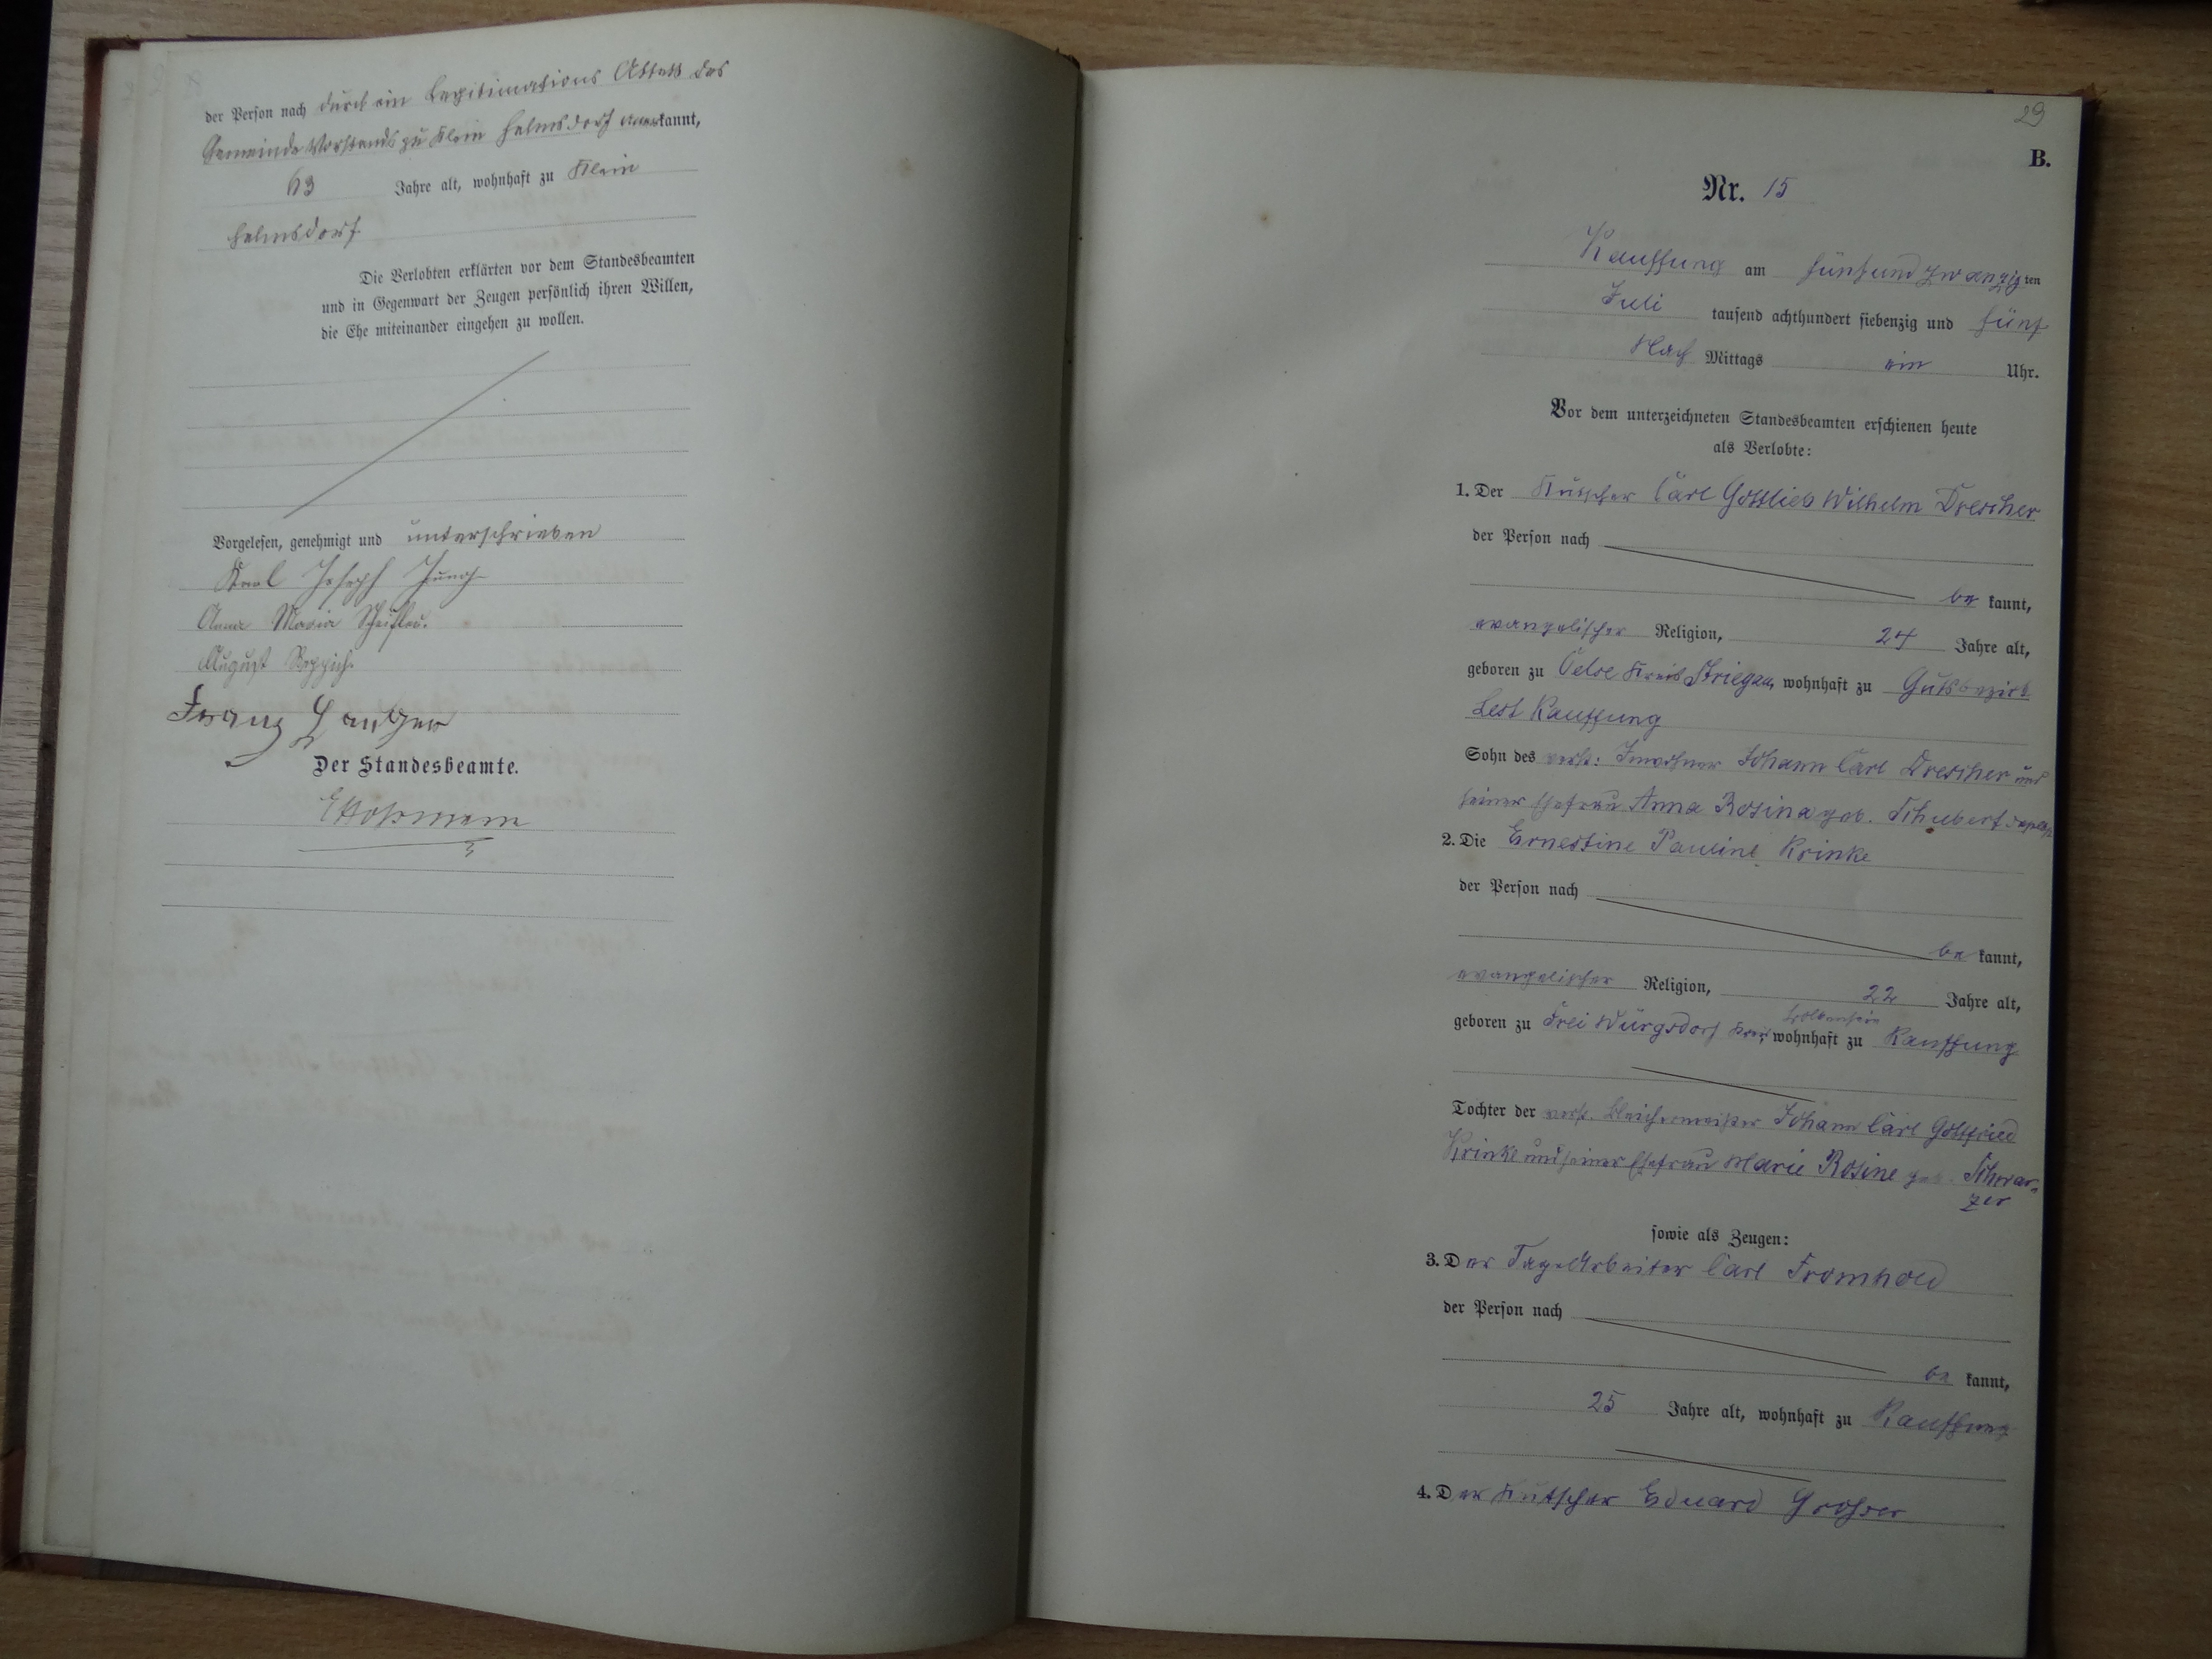 der Person nach durch ein Legitimations Attest des
Gemeinde Vorstands zu Klein Helmsdorf anerkannt,
63 Jahre alt, wohnhaft zu Klein
Helmsdorf.
Die Verlobten erklärten vor dem Standesbeamten
und in Gegenwart der Zeugen persönlich ihren Willen,
die Ehe miteinander eingehen zu wollen.
Vorgelesen, genehmigt und unterschrieben
Karl Joseph Jung
Anna Maria
August
Franz Langer
Der Standesbeamte.
29
B.
Nr. 15
Kauffung am fünf und zwanzigten
Juli tausend achthundert siebenzig und fünf
Nach Mittags ein Uhr.
Vor dem unterzeichneten Standesbeamten erschienen heute
als Verlobte:
1. Der Kutscher Carl Gottlieb Wilhelm Drescher
der Person nach
be kannt,
evangelischer Religion, 24 Jahre alt,
geboren zu Oelse Kreis Striegau, wohnhaft zu Gutsbezirk
Lest Kauffung
Sohn des verst: Inwohner Johann Carl Drescher und
seiner Ehefrau Anna Rosina geb. Schubert
2. Die Ernestine Pauline Krinke
der Person nach
be kannt,
evangelischer Religion, 22 Jahre alt,
Bolkenhain
geboren zu Frei Würgsdorf Kreis wohnhaft zu Kauffung
Tochter der verst. Bleichermeister Johann Carl Gottfried
Krinke und seiner Ehefrau Marie Rosine geb. Schwar-
zer
sowie als Zeugen:
3. Der TageArbeiter Carl Fromhold
der Person nach
be kannt,
25 Jahre alt, wohnhaft zu Kauffung
4. Der Kutscher Eduard Grosser